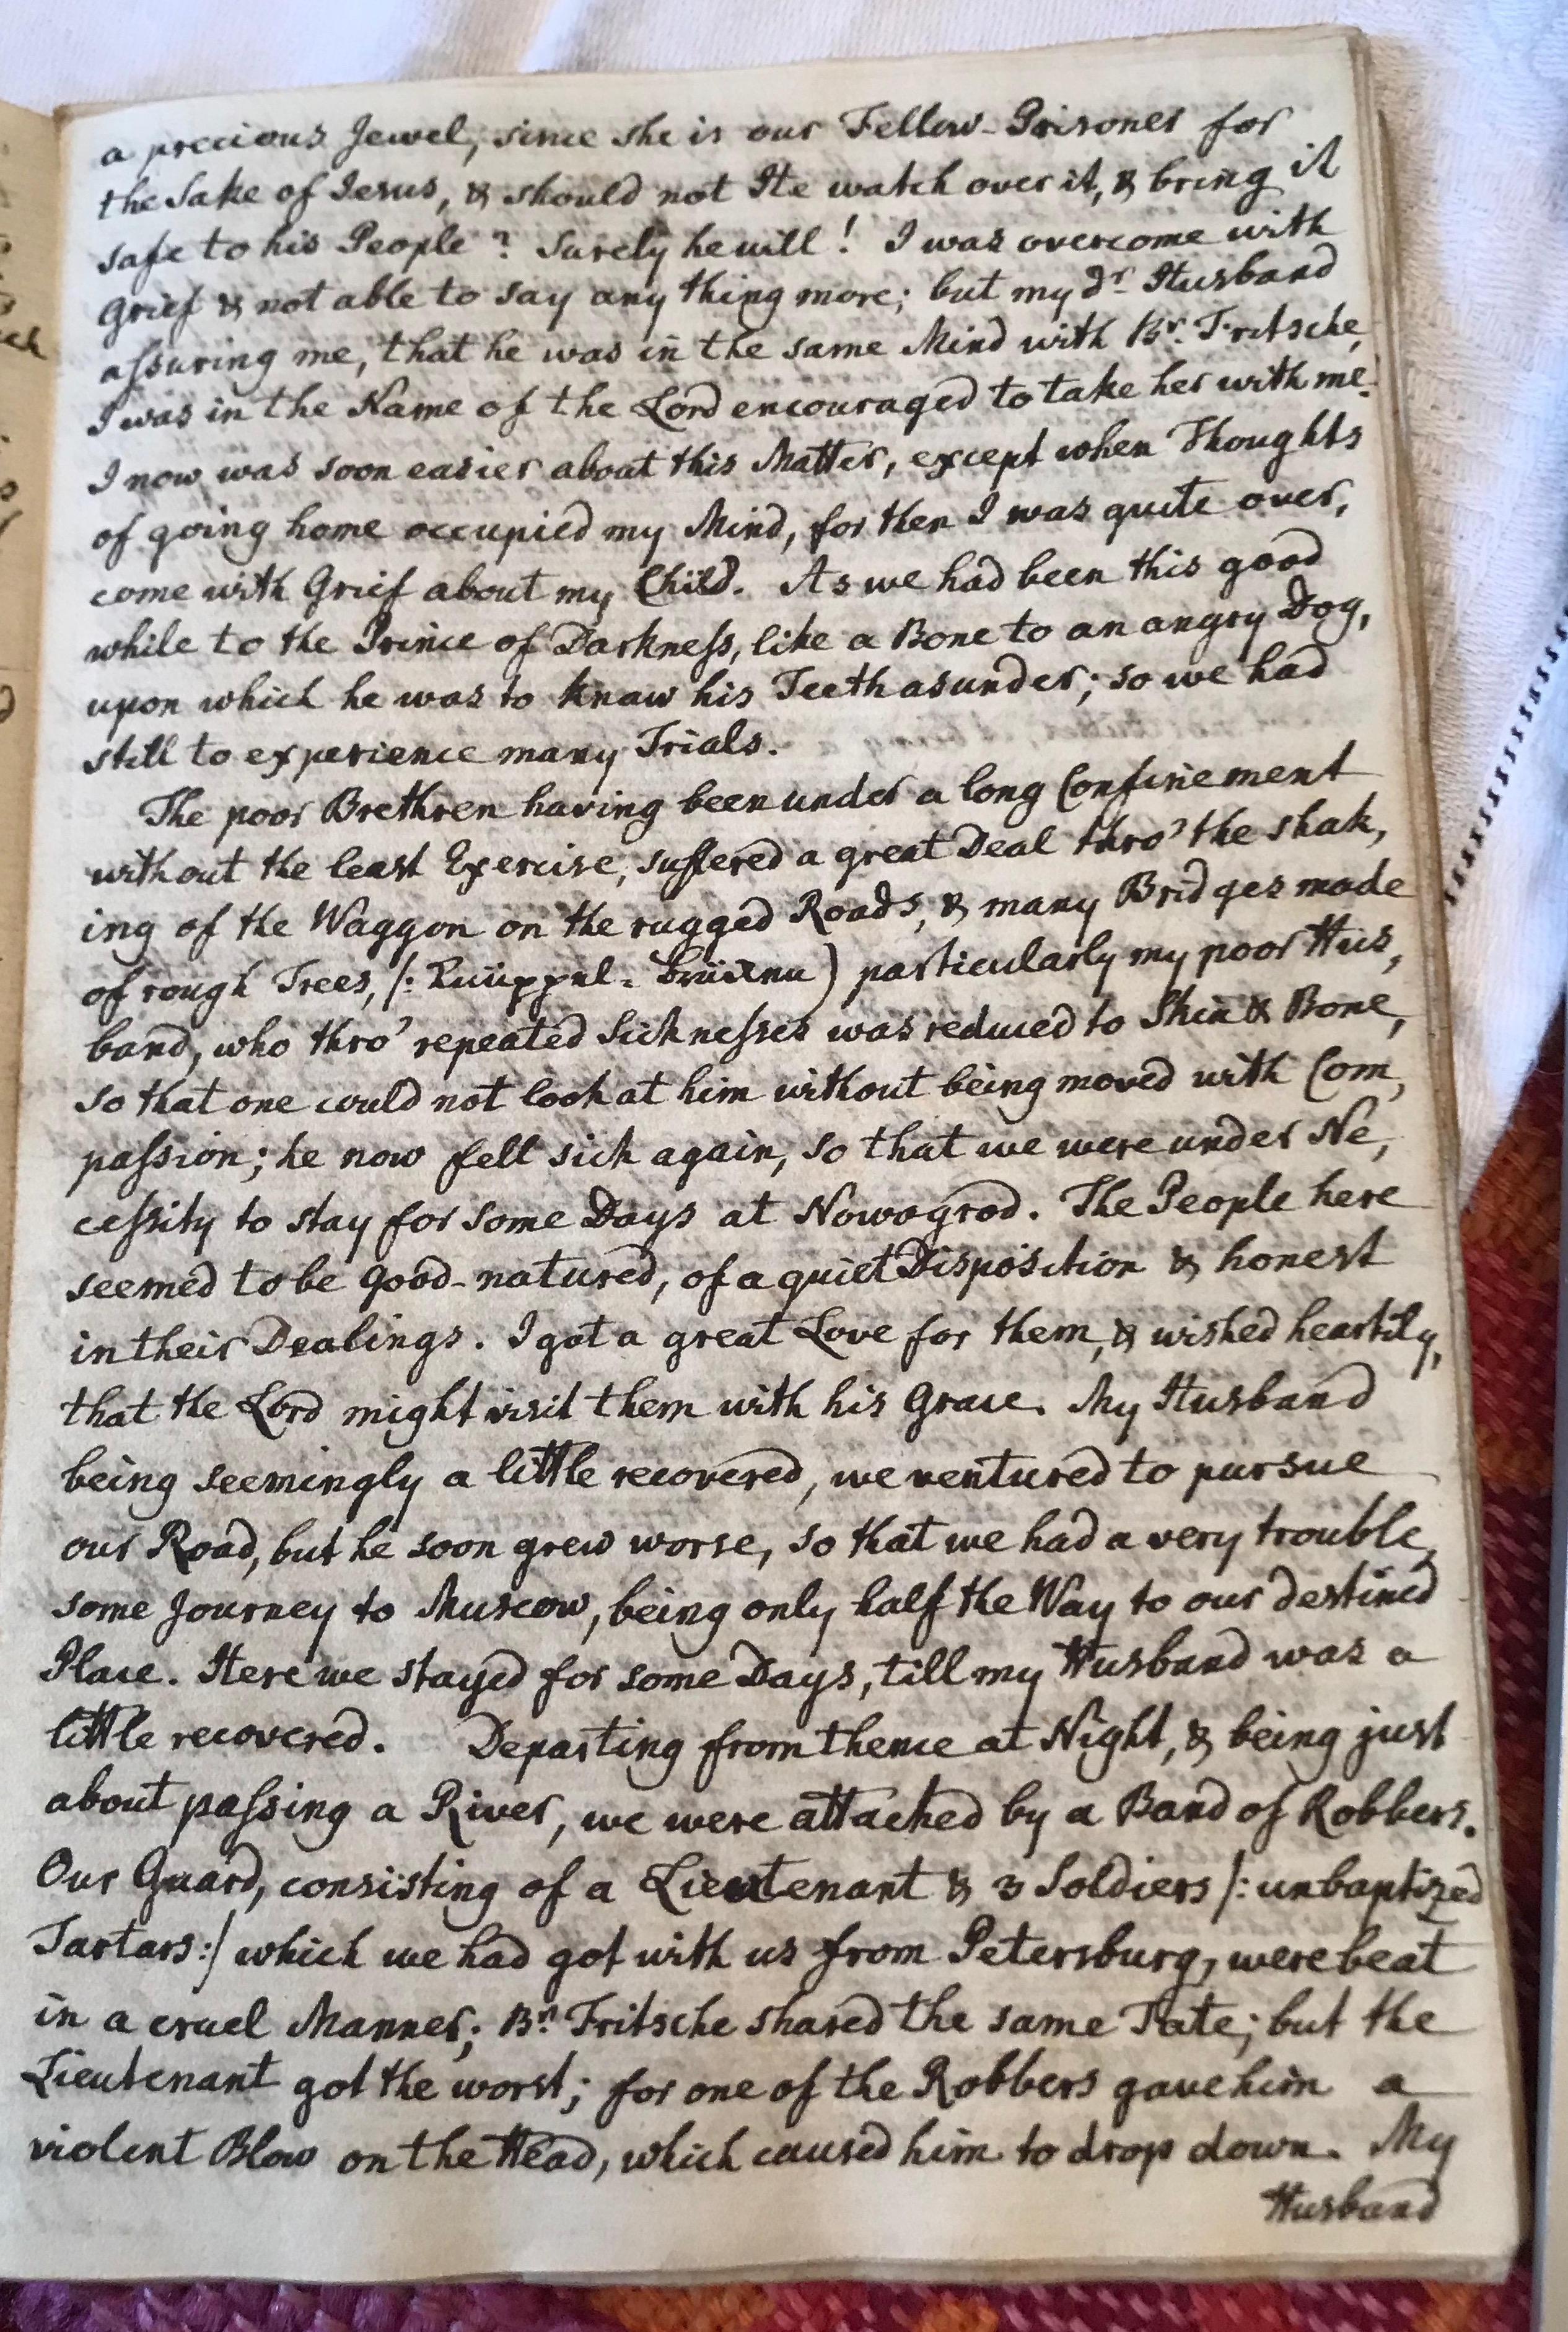 a precious Jewel, since she is our Fellow-Prisoner for
the Sake of Jesus, & should not He watch over it, & bring it
safe to his People? Surely he will! I was overcome with
Grief & not able to say any thing more; but my dr. Husband
assuring me, that he was in the same Mind with Br. Fritsche,
I was in the Name of the Lord encouraged to take her with me.
I now was soon easier about this Matter, except when Thoughts
of going home occupied my Mind, for then I was quite over,
come with Grief about my Child. As we had been this good
while to the Prince of Darkness, like a Bone to an angry Dog,
upon which he was to knaw his Teeth asunder; so we had
still to experience many Trials.
The poor Brethren having been under a long Confinement
without the least Exercise, suffered a great Deal thro' the shak,
ing of the Waggon on the rugged Roads, & many Bridges made
of rough Trees, /: Knüppel-Brücken) particularly my poor Hus,
band, who thro' repeated Sicknesses was reduced to Skin & Bone,
so that one could not look at him without being moved with Com,
passion; he now fell sick again, so that we were under Ne,
cessity to stay for some Days at Nowogrod. The People here
seemed to be good-natured, of a quiet Disposition & honest
in their Dealings. I got a great Love for them, & wished heartily,
that the Lord might visit them with his Grace. My Husband
being seemingly a little recovered, we ventured to pursue
our Road, but he soon grew worse, so that we had a very trouble,
some Journey to Muscow, being only half the Way to our destined
Place. Here we stayed for some Days, till my Husband was a
little recovered. Departing from thence at Night, & being just
about passing a River, we were attacked by a Band of Robbers.
Our Guard, consisting of a Lieutenant & 3 Soldiers /: unbaptized
Tartars :/ which we had got with us from Petersburg, were beat
in a cruel Manner; Br. Fritsche shared the same Fate; but the
Lieutenant got the worst; for one of the Robbers gave him a
violent Blow on the Head, which caused him to drop down. My
Husband